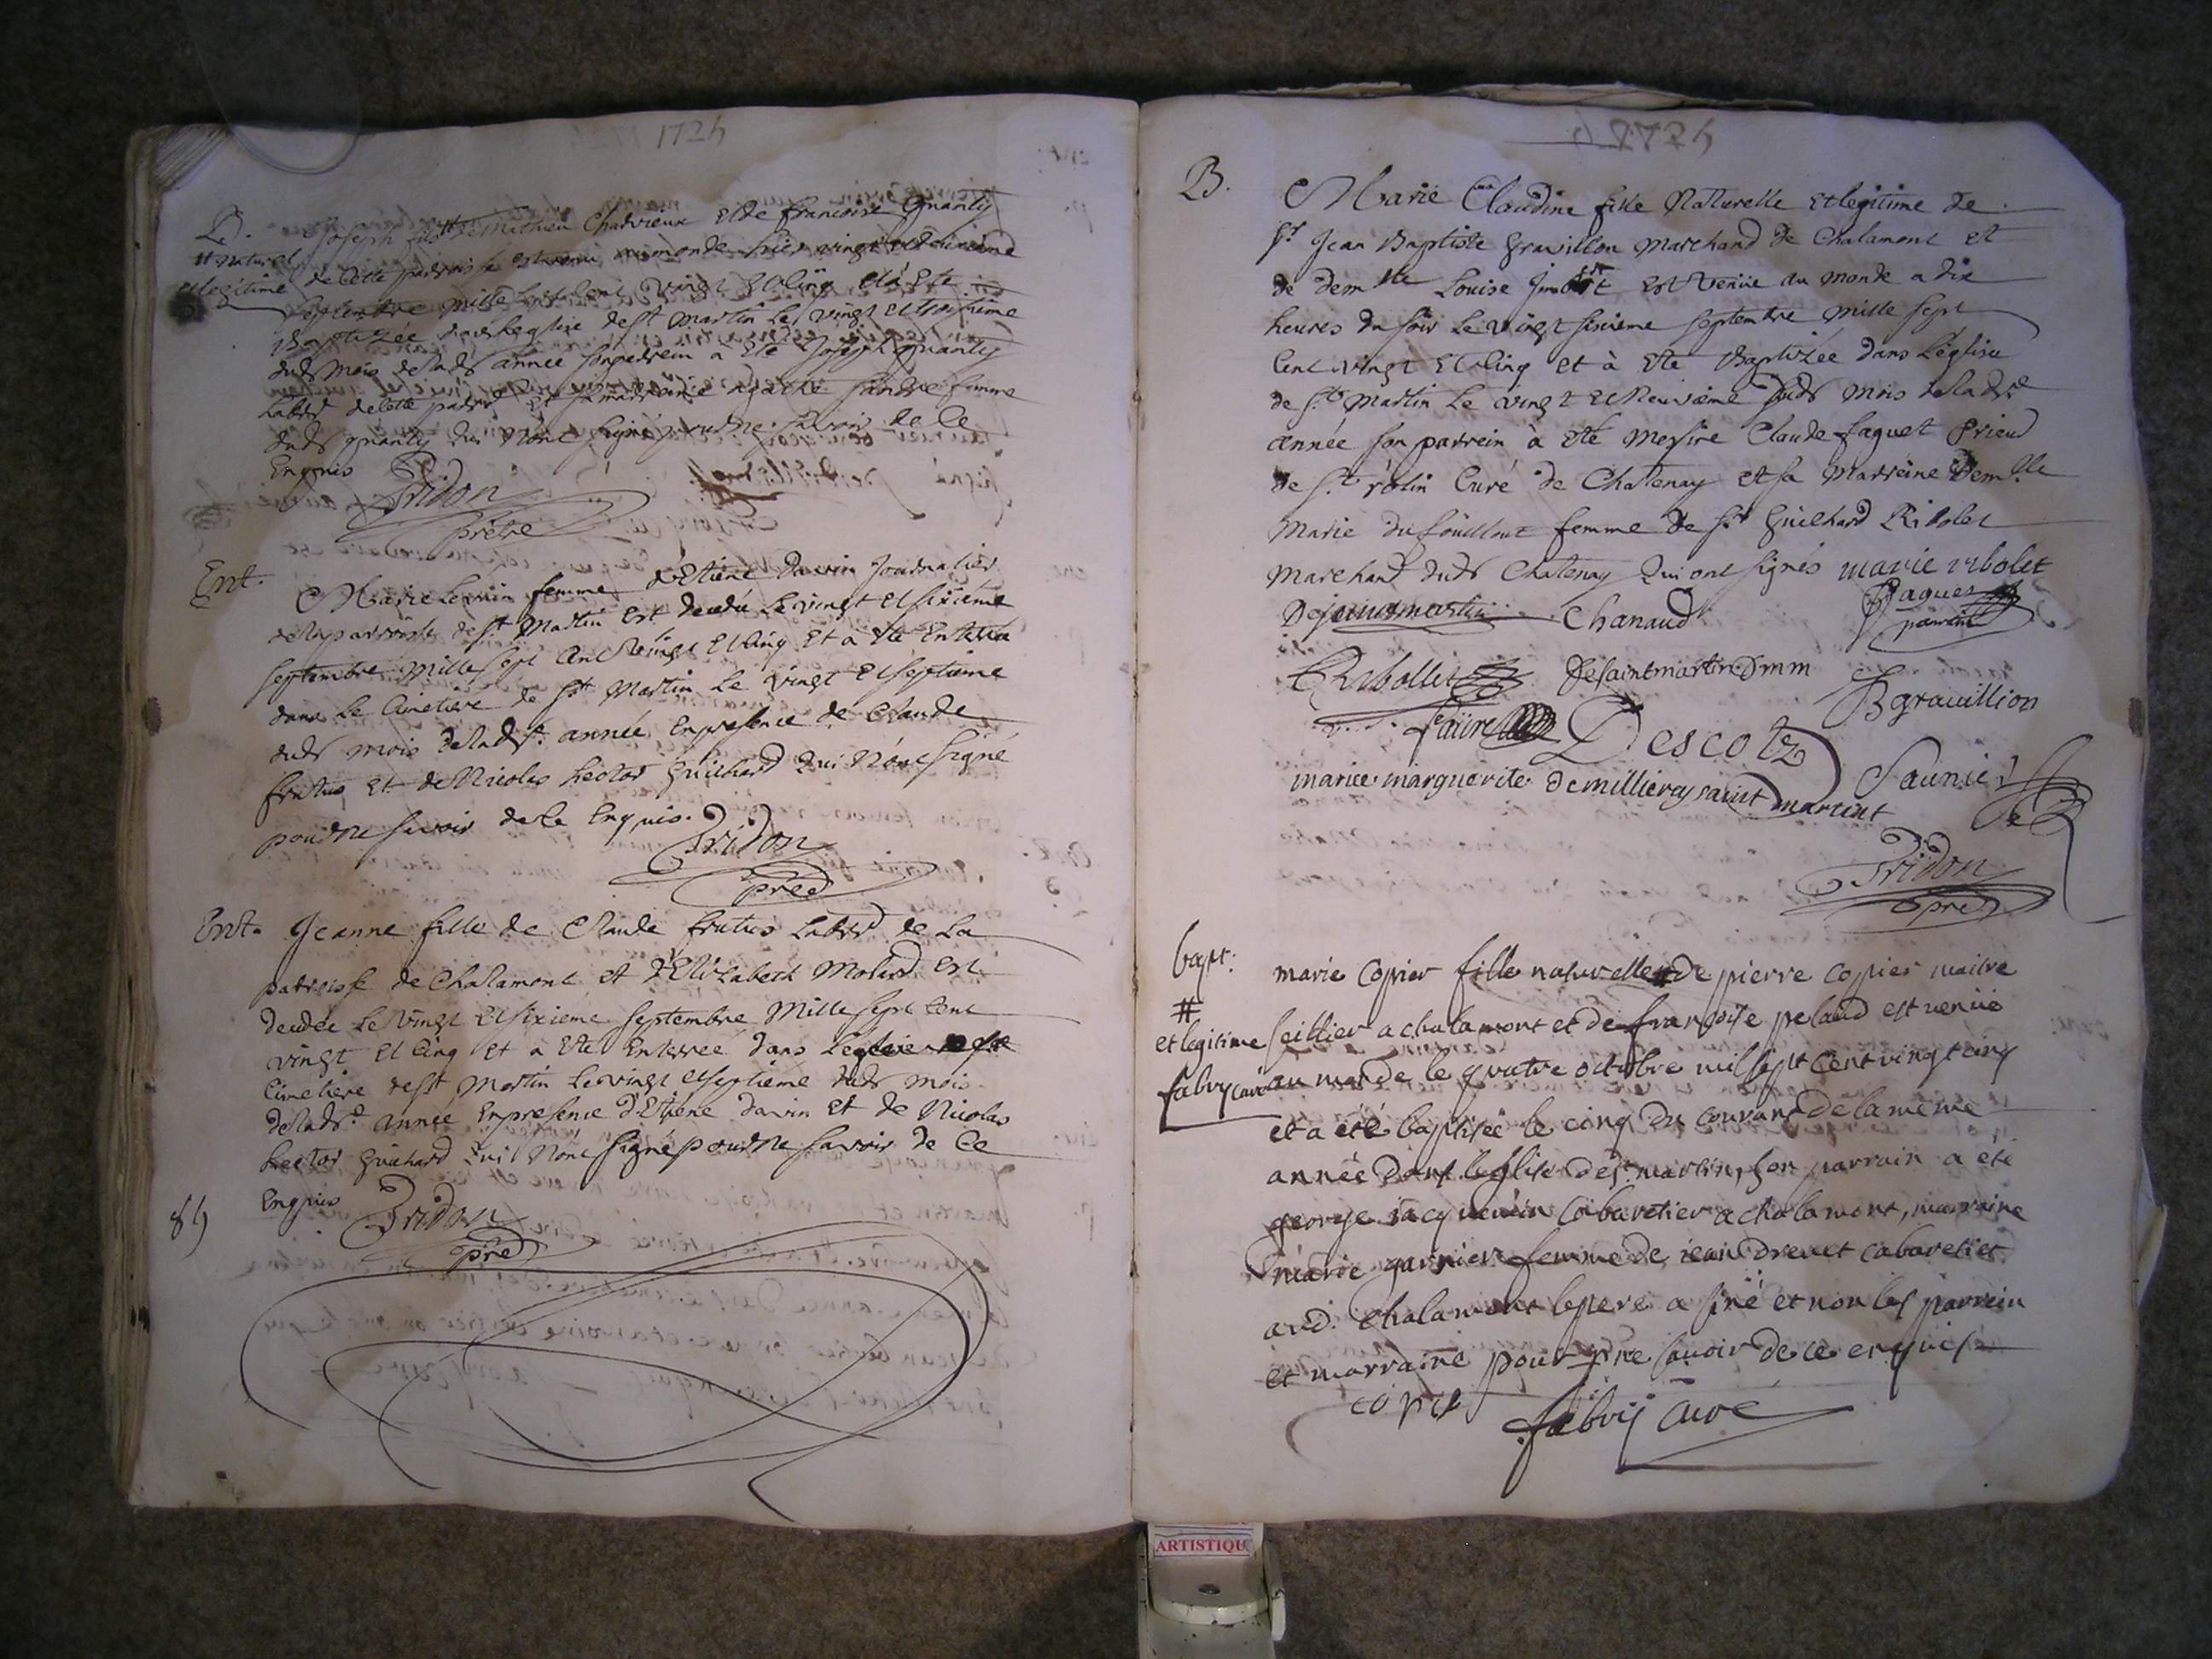 1725
B. Joseph fils # de Mathieu Charvieux et de francoise quanty
# naturel et legitime
de cette parroisse est venu au monde hier vingt et deuxieme
septembre mille sept cent vingt et cinq et à Eté
Baptizée dans leglise de st martin le vingt et troisieme
dudt mois de ladt année son parrein a Eté Joseph quanty
labr de cette parrse et sa marreine agathe femme
dudt quanty qui n'ont signé pour ne savoir de ce
Enquis Pridon
prètre
Ent. Marie femme d'Etiene Davin Journalier
de la parroisse de st Martin est decedée le vingt et sixieme
septembre mille sept cent vingt et cinq et a Eté Enterrée
dans le Cimetiere de st Martin le vingt et septieme
dudt mois de ladte année En presence de Claude
frutus et de Nicolas hector Guichard qui n'ont signé
pour ne savoir de ce Enquis. Pridon
pre
Ent. Jeanne fille de Claude frutus labr de la
parroisse de Chalamont et d'Elizabeth Molard est
decedée le vingt et sixieme septembre Mille sept cent
vingt et cinq et a Eté Enterrée dans
Cimetiere de st Martin le vingt et septieme dudt mois
de ladte année En presence d'Etiene Davin et de Nicolas
hector Guichard qui n'ont signé pour ne savoir de ce
Enquis Pridon
pre
1725
B. Marie Claudine fille Naturelle et legitime de
sr Jean Baptiste Gravillon marchand de Chalamont et
de demlle Louise est venüe au monde a dix
heures du soir le vingt sixieme septembre mille sept
cent vingt et cinq et à Eté Baptizée dans l'église
de st Martin le vingt et Neuvieme dudt mois de ladte
année son parrein à eté Messire Claude Jaquet Prieur
de st Curé de Chatenay et sa Marreine Demlle
Marie du femme de sr Guichard Ribolet
Marchand dudt Chatenay qui ont signés marie ribolet
Chanaud Jaquet
parrein
Ribollet Desaintmartin JB gravillion
faure Descotz
marie marguerite de millieray saint martint Saunier
Pridon
pre
bapt: marie copier fille naturelle # de pierre copier maitre
# et legitime
fabry curé
seillier a chalamont et de françoise pelaud est venüe
au monde le quatre octobre mil sept cent vingt cinq
et a été baptisée le cinq du courant de la meme
année dans leglise de st martin, son parrain a eté
george jacquemin cabaretier a chalamont, marraine
marie garnier femme de jean drevet cabaretier
aud. chalamont le pere a siné et non les parrein
et marraine pour ne savoir de ce enquis
copié fabry curé